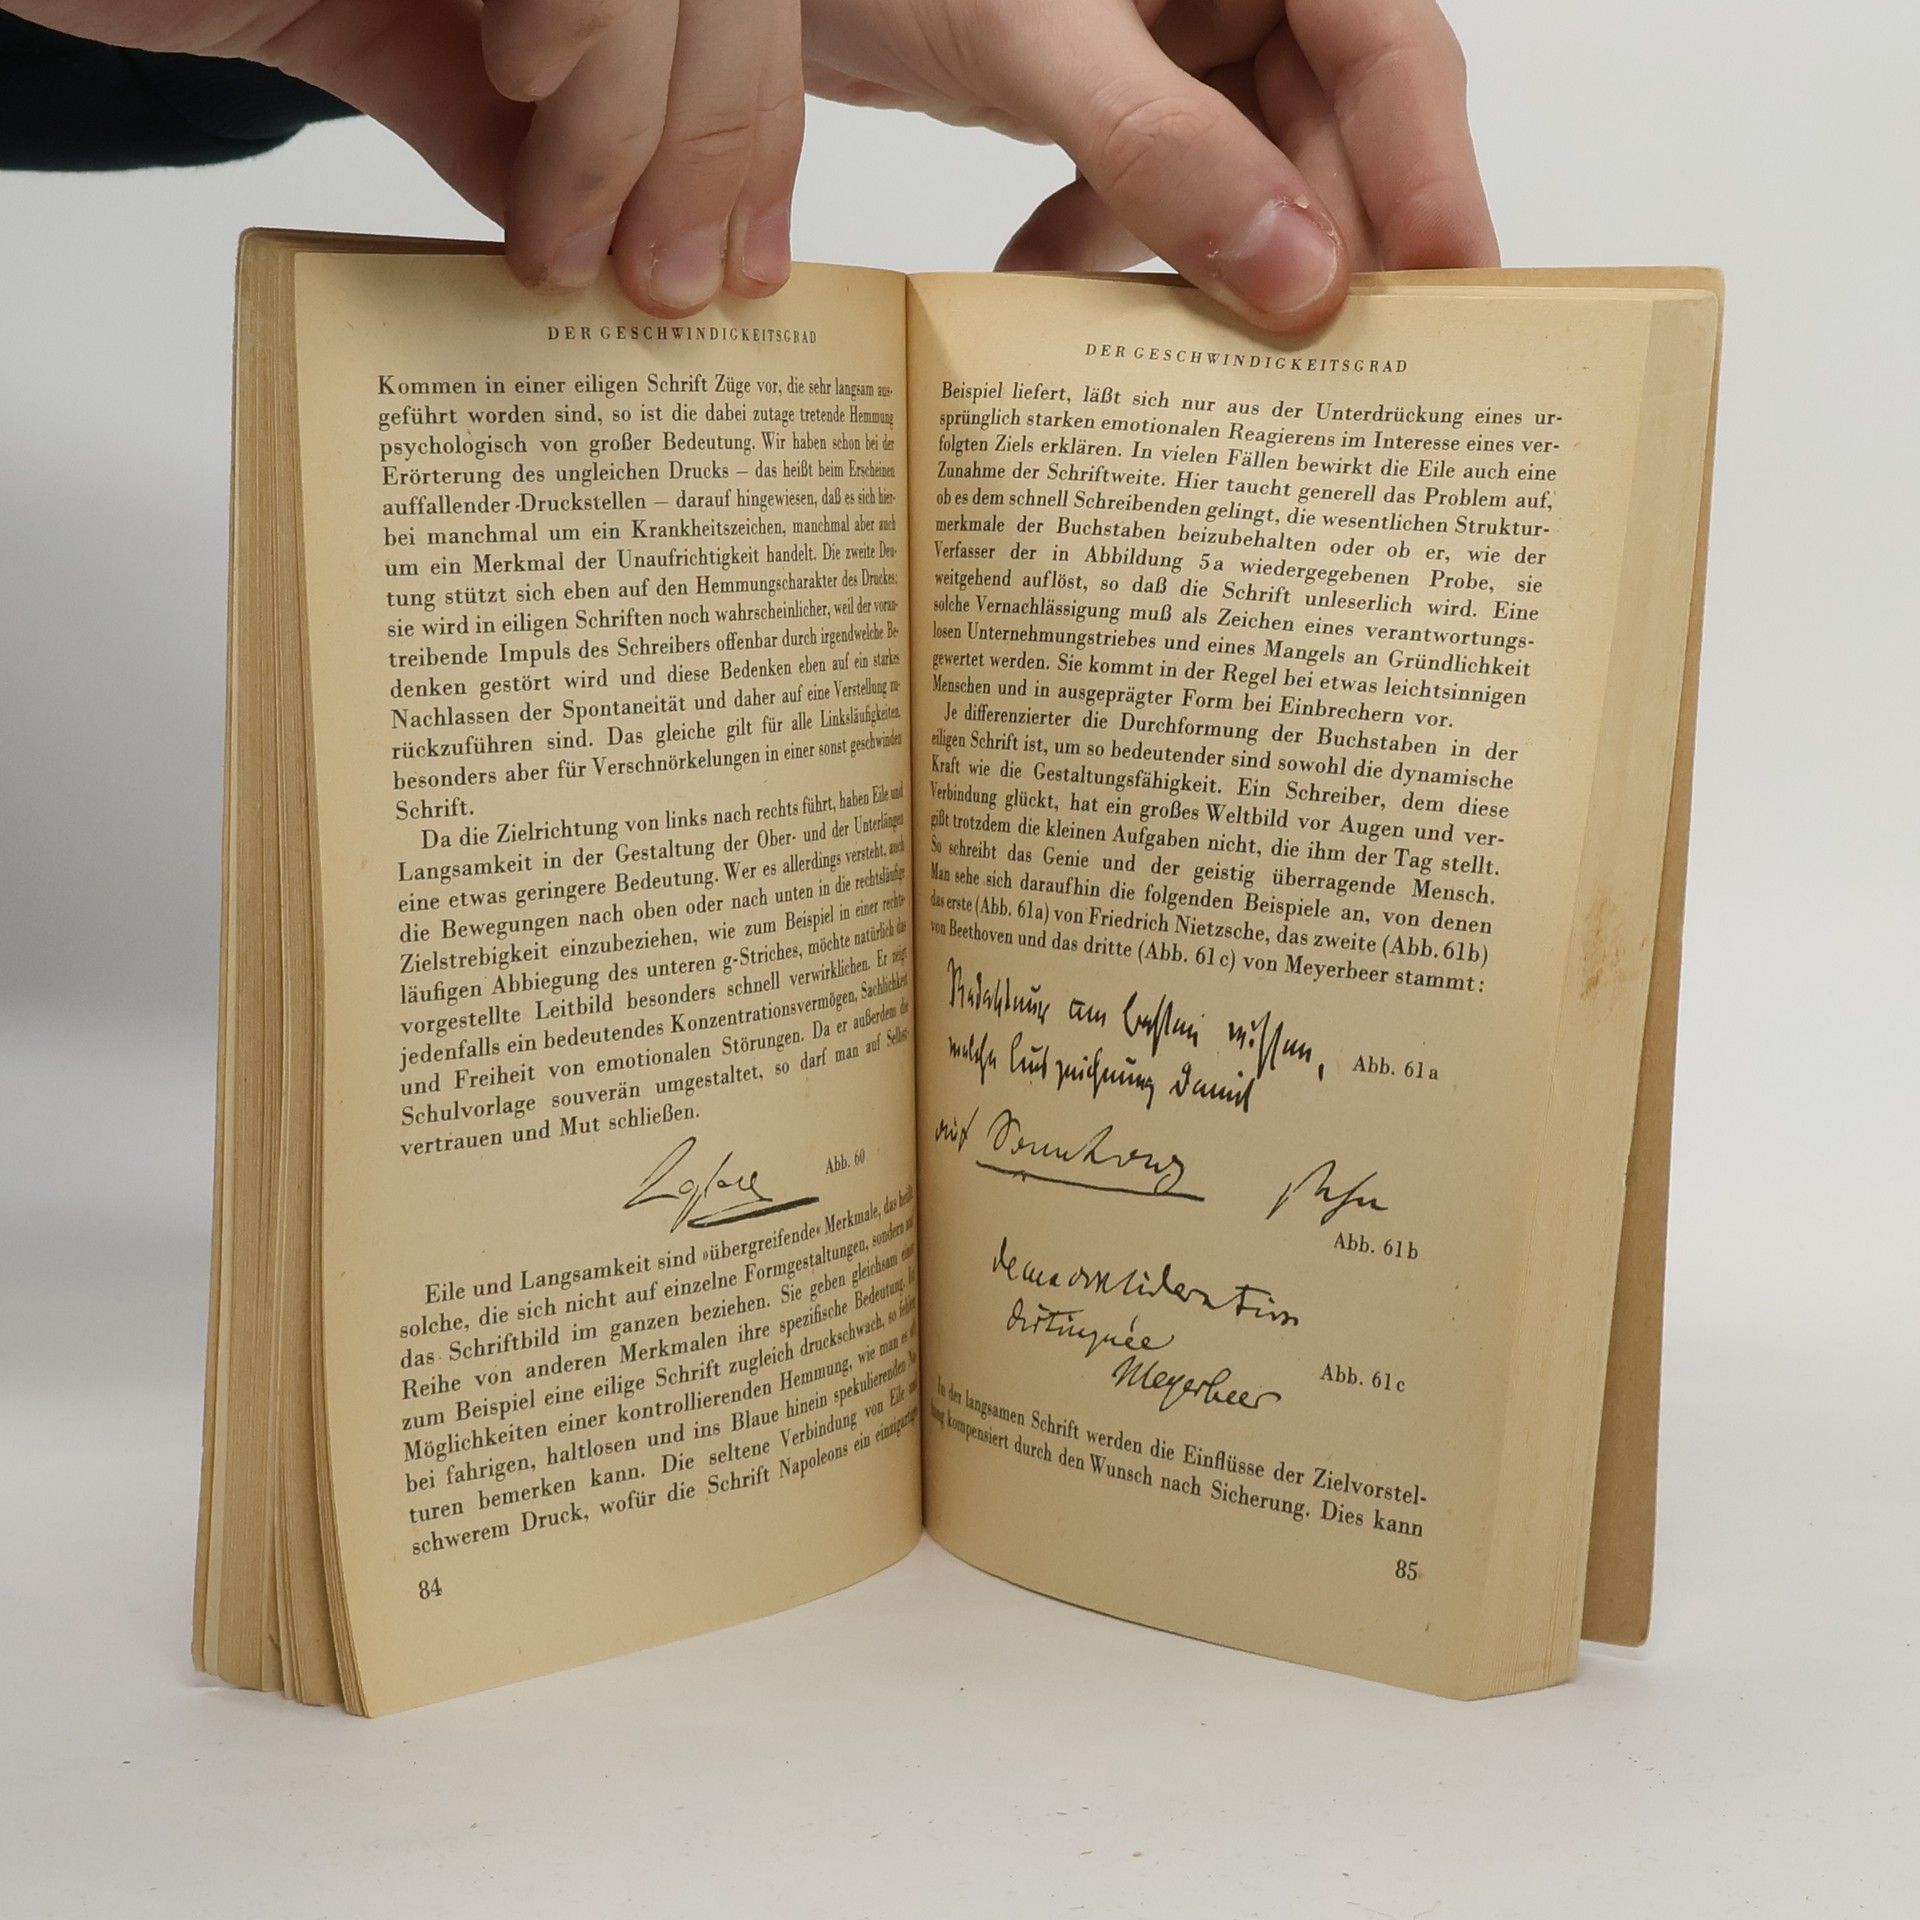 DER GESCHWINDIGKEITSGRAD
Kommen in einer eiligen Schrift Züge vor, die sehr langsam aus-
geführt worden sind, so ist die dabei zutage tretende Hemmung
psychologisch von großer Bedeutung. Wir haben schon bei der
Erörterung des ungleichen Drucks – das heißt beim Erscheinen
auffallender Druckstellen – darauf hingewiesen, daß es sich hier-
bei manchmal um ein Krankheitszeichen, manchmal aber auch
um ein Merkmal der Unaufrichtigkeit handelt. Die zweite Deu-
tung stützt sich eben auf den Hemmungscharakter des Druckes;
sie wird in eiligen Schriften noch wahrscheinlicher, weil der voran-
treibende Impuls des Schreibers offenbar durch irgendwelche Be-
denken gestört wird und diese Bedenken eben auf ein starkes
Nachlassen der Spontaneität und daher auf eine Verstellung zu-
rückzuführen sind. Das gleiche gilt für alle Linksläufigkeiten,
besonders aber für Verschnörkelungen in einer sonst geschwinden
Schrift.
Da die Zielrichtung von links nach rechts führt, haben Eile und
Langsamkeit in der Gestaltung der Ober- und der Unterlängen
eine etwas geringere Bedeutung. Wer es allerdings versteht, auch
die Bewegungen nach oben oder nach unten in die rechtsläufige
Zielstrebigkeit einzubeziehen, wie zum Beispiel in einer rechts-
läufigen Abbiegung des unteren g-Striches, möchte natürlich das
vorgestellte Leitbild besonders schnell verwirklichen. Er zeigt
jedenfalls ein bedeutendes Konzentrationsvermögen, Sachlichkeit
und Freiheit von emotionalen Störungen. Da er außerdem die
Schulvorlage souverän umgestaltet, so darf man auf Selbst-
vertrauen und Mut schließen.
Abb. 60
Eile und Langsamkeit sind »übergreifende« Merkmale, das heißt
solche, die sich nicht auf einzelne Formgestaltungen, sondern auf
das Schriftbild im ganzen beziehen. Sie geben gleichsam einer
Reihe von anderen Merkmalen ihre spezifische Bedeutung. Ist
zum Beispiel eine eilige Schrift zugleich druckschwach, so fehlen
Möglichkeiten einer kontrollierenden Hemmung, wie man es oft
bei fahrigen, haltlosen und ins Blaue hinein spekulierenden Na-
turen bemerken kann. Die seltene Verbindung von Eile und
schwerem Druck, wofür die Schrift Napoleons ein einzigartiges
84
DER GESCHWINDIGKEITSGRAD
Beispiel liefert, läßt sich nur aus der Unterdrückung eines ur-
sprünglich starken emotionalen Reagierens im Interesse eines ver-
folgten Ziels erklären. In vielen Fällen bewirkt die Eile auch eine
Zunahme der Schriftweite. Hier taucht generell das Problem auf,
ob es dem schnell Schreibenden gelingt, die wesentlichen Struktur-
merkmale der Buchstaben beizubehalten oder ob er, wie der
Verfasser der in Abbildung 5a wiedergegebenen Probe, sie
weitgehend auflöst, so daß die Schrift unleserlich wird. Eine
solche Vernachlässigung muß als Zeichen eines verantwortungs-
losen Unternehmungstriebes und eines Mangels an Gründlichkeit
gewertet werden. Sie kommt in der Regel bei etwas leichtsinnigen
Menschen und in ausgeprägter Form bei Einbrechern vor.
Je differenzierter die Durchformung der Buchstaben in der
eiligen Schrift ist, um so bedeutender sind sowohl die dynamische
Kraft wie die Gestaltungsfähigkeit. Ein Schreiber, dem diese
Verbindung glückt, hat ein großes Weltbild vor Augen und ver-
gißt trotzdem die kleinen Aufgaben nicht, die ihm der Tag stellt.
So schreibt das Genie und der geistig überragende Mensch.
Man sehe sich daraufhin die folgenden Beispiele an, von denen
das erste (Abb. 61a) von Friedrich Nietzsche, das zweite (Abb. 61b)
von Beethoven und das dritte (Abb. 61c) von Meyerbeer stammt:
am besten wissen,
welche Auszeichnung damit
Abb. 61a
Abb. 61b
de ma consideration
distinguée
Meyerbeer
Abb. 61c
In der langsamen Schrift werden die Einflüsse der Zielvorstel-
lung kompensiert durch den Wunsch nach Sicherung. Dies kann
85